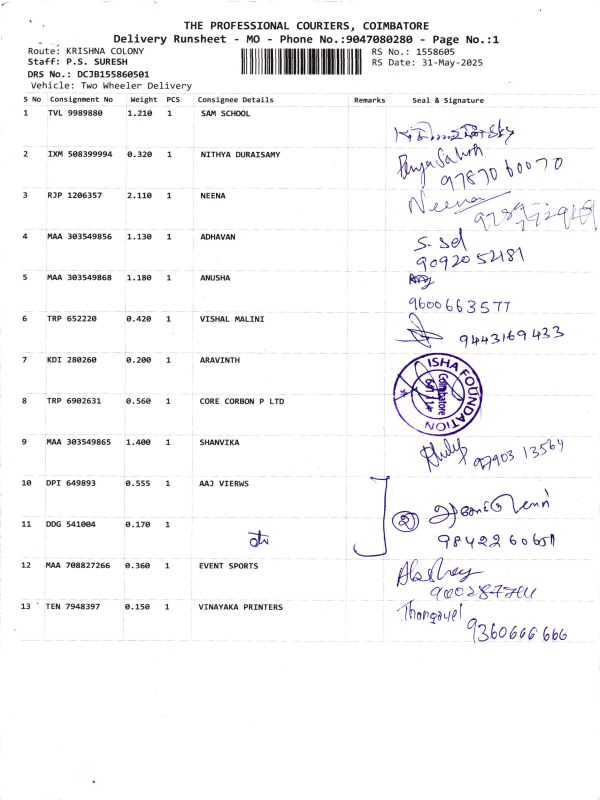 THE PROFESSIONAL COURIERS, COIMBATORE
Delivery Runsheet - MO - Phone No.:9047080280 - Page No.:1
Route: KRISHNA COLONY RS No.: 1558605
Staff: P.S. SURESH RS Date: 31-May-2025
DRS No.: DCJB155860501
Vehicle: Two Wheeler Delivery
S No Consignment No Weight PCS Consignee Details Remarks Seal & Signature
1 TVL 9989880 1.210 1 SAM SCHOOL
2 IXM 508399994 0.320 1 NITHYA DURAISAMY
9787060070
3 RJP 1206357 2.110 1 NEENA Neena
4 MAA 303549856 1.130 1 ADHAVAN S. Sel
9092052181
5 MAA 303549868 1.180 1 ANUSHA
9600663577
6 TRP 652220 0.420 1 VISHAL MALINI 9443169433
7 KDI 280260 0.200 1 ARAVINTH
ISHA FOUNDATION
Coimbatore
8 TRP 6902631 0.560 1 CORE CORBON P LTD
9 MAA 303549865 1.400 1 SHANVIKA
97903 13564
10 DPI 649893 0.555 1 AAJ VIERWS
11 DDG 541004 0.170 1
12 MAA 708827266 0.360 1 EVENT SPORTS Akshay
13 TEN 7948397 0.150 1 VINAYAKA PRINTERS Thangavel
9360666666